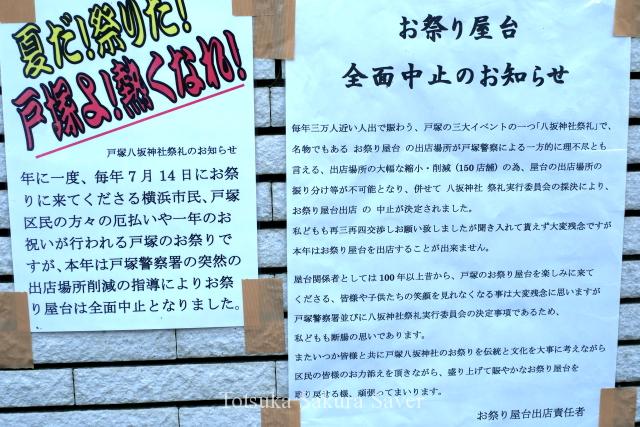 夏だ!祭りだ!
戸塚よ!熱くなれ!
戸塚八坂神社祭礼のお知らせ
年に一度、毎年7月14日にお祭
りに来てくださる横浜市民、戸塚
区民の方々の厄払いや一年のお
祝いが行われる戸塚のお祭りで
すが、本年は戸塚警察署の突然の
出店場所削減の指導によりお祭
り屋台は全面中止となりました。
お祭り屋台
全面中止のお知らせ
毎年三万人近い人出で賑わう、戸塚の三大イベントの一つ「八坂神社祭礼」で、
名物でもある お祭り屋台 の出店場所が戸塚警察による一方的に理不尽とも
言える、出店場所の大幅な縮小・削減(150店舗)の為、屋台の出店場所の
振り分け等が不可能となり、併せて 八坂神社 祭礼実行委員会の採決により、
お祭り屋台出店 の 中止が決定されました。
私どもも再三再四交渉しお願い致しましたが聞き入れて貰えず大変残念ですが
本年はお祭り屋台を出店することが出来ません。
屋台関係者としては100年以上昔から、戸塚のお祭り屋台を楽しみに来て
くださる、皆様や子供たちの笑顔を見れなくなる事は大変残念に思いますが
戸塚警察署並びに八坂神社祭礼実行委員会の決定事項であるため、
私どもも断腸の思いであります。
またいつか皆様と共に戸塚八坂神社のお祭りを伝統と文化を大事に考えながら
区民の皆様のお力添えを頂きながら、盛り上げて賑やかなお祭り屋台を
取り戻する様、頑張ってまいります。
お祭り屋台出店責任者
Totsuka Sakura Saver